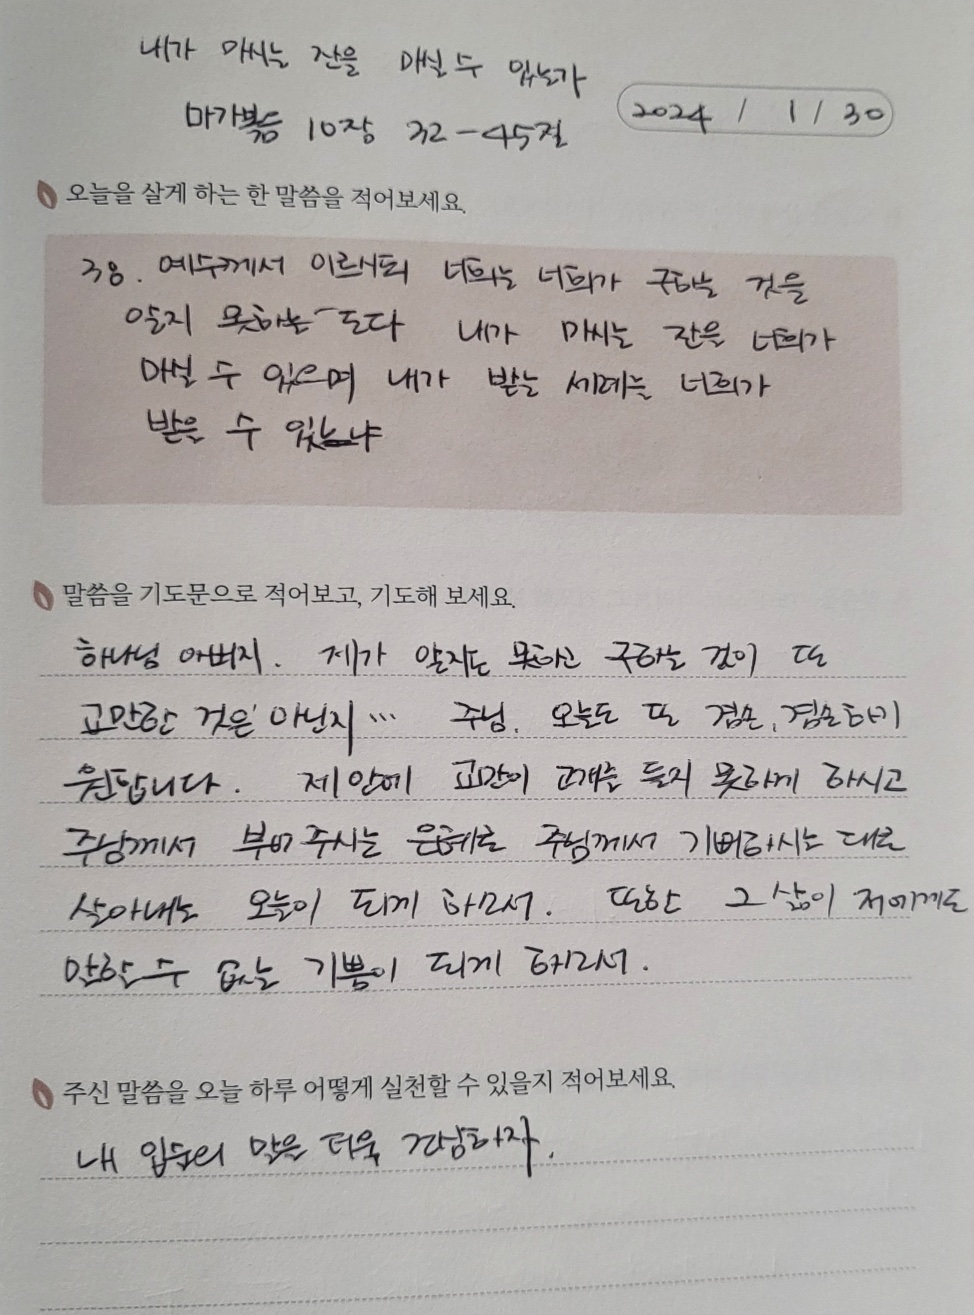 내가 마시는 잔을 마실 수 있는가
마가복음 10장 32-45절
2024 / 1 / 30
오늘을 살게 하는 한 말씀을 적어보세요.
38. 예수께서 이르시되 너희는 너희가 구하는 것을
알지 못하는도다 내가 마시는 잔을 너희가
마실 수 있으며 내가 받는 세례를 너희가
받을 수 있느냐
말씀을 기도문으로 적어보고, 기도해 보세요.
하나님 아버지. 제가 알지도 못하고 구하는 것이 또
교만한 것은 아닌지… 주님, 오늘도 또 겸손, 겸손하기
원합니다. 제 안에 교만이 고개를 들지 못하게 하시고
주님께서 부어주시는 은혜로 주님께서 기뻐하시는 대로
살아내는 오늘이 되게 하소서. 또한 그 삶이 저에게도
말할 수 없는 기쁨이 되게 하소서.
주신 말씀을 오늘 하루 어떻게 실천할 수 있을지 적어보세요.
내 입술의 말을 더욱 감찰하자.